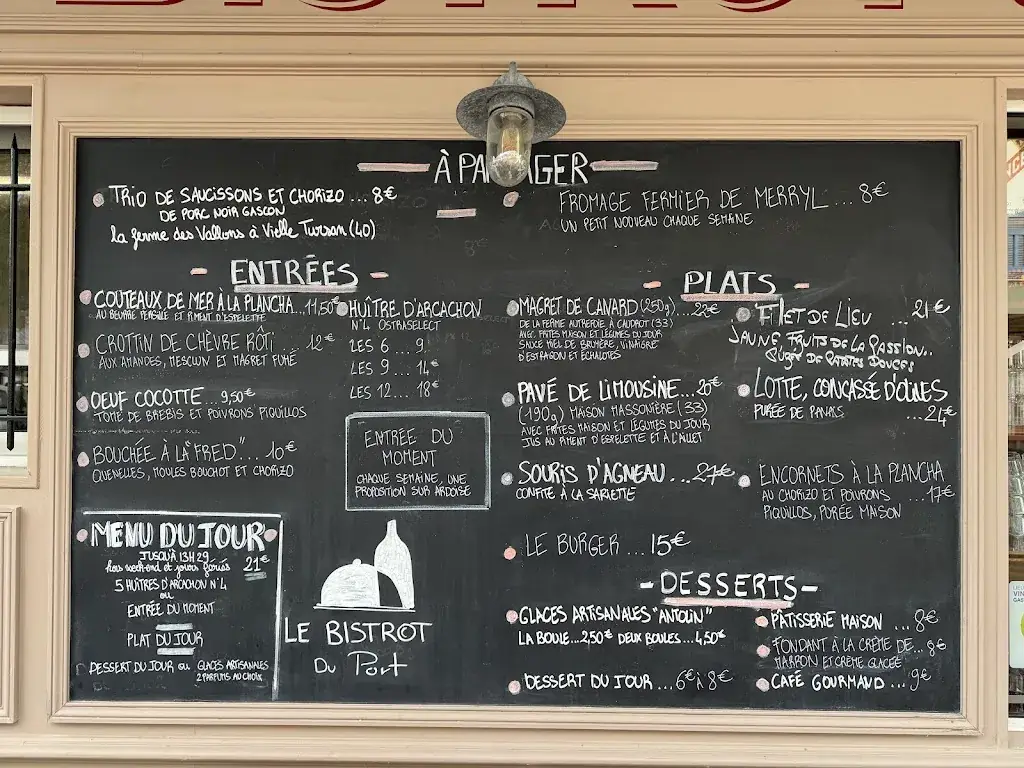 BISTROT
À PARTAGER
TRIO DE SAUCISSONS ET CHORIZO ... 8€
DE PORC NOIR GASCON
la ferme des Vallons à Vielle Tursan (40)
FROMAGE FERMIER DE MERRYL ... 8€
UN PETIT NOUVEAU CHAQUE SEMAINE
ENTRÉES
COUTEAUX DE MER À LA PLANCHA ... 11,50€
AU BEURRE PERSILLÉ ET PIMENT D'ESPELETTE
CROTTIN DE CHÈVRE RÔTI ... 12€
AUX AMANDES, MESCLUN ET MAGRET FUMÉ
OEUF COCOTTE ... 9,50€
TOME DE BREBIS ET POIVRONS PIQUILLOS
BOUCHÉE À LA "FRED" ... 10€
QUENELLES, MOULES BOUCHOT ET CHORIZO
HUÎTRE D'ARCACHON
N°4 OSTRASELECT
LES 6 ... 9€
LES 9 ... 14€
LES 12 ... 18€
ENTRÉE DU
MOMENT
CHAQUE SEMAINE, UNE
PROPOSITION SUR ARDOISE
MENU DU JOUR
JUSQU'À 13H29
hors week-end et jours fériés 21€
5 HUÎTRES D'ARCACHON N°4
ou
ENTRÉE DU MOMENT
PLAT DU JOUR
DESSERT DU JOUR ou GLACES ARTISANALES
2 PARFUMS AU CHOIX
LE BISTROT
Du Port
PLATS
MAGRET DE CANARD (250g) ... 22€
DE LA FERME AUTREFOIE À CAUDROT (33)
AVEC FRITES MAISON ET LÉGUMES DU JOUR
SAUCE MIEL DE BRUYÈRE, VINAIGRE
D'ESTRAGON ET ÉCHALOTES
PAVÉ DE LIMOUSINE ... 20€
(190g) MAISON MASSONIÈRE (33)
AVEC FRITES MAISON ET LÉGUMES DU JOUR
JUS AU PIMENT D'ESPELETTE ET À L'AILLET
SOURIS D'AGNEAU ... 27€
CONFITE À LA SARIETTE
LE BURGER ... 15€
FILET DE LIEU ... 21€
JAUNE FRUITS DE LA PASSION..
PURÉE DE PATATES DOUCES
LOTTE, CONCASSÉ D'OLIVES
PURÉE DE PANAIS ... 24€
ENCORNETS À LA PLANCHA
AU CHORIZO ET POIVRONS ... 17€
PIQUILLOS, PURÉE MAISON
DESSERTS
GLACES ARTISANALES "ANTOLIN"
LA BOULE ... 2,50€ DEUX BOULES ... 4,50€
DESSERT DU JOUR ... 6€ À 8€
PATISSERIE MAISON ... 8€
FONDANT À LA CRÈME DE ... 8€
MARRON ET CRÈME GLACÉE
CAFÉ GOURMAND ... 9€